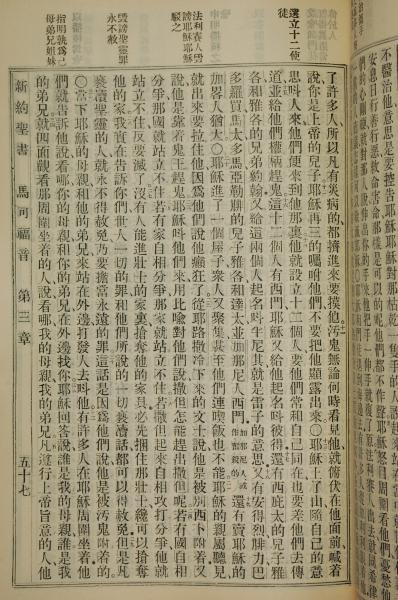 不醫治他意思是要控告耶穌耶穌對那枯乾一隻手的
安息日行善行惡救命害命那樣是可以的呢他們都不作聲耶穌怒目周圍看他們憂愁他
選立十二使徒
法利賽人毀謗耶穌耶穌駁之
毀謗聖靈罪永不赦
指明孰爲己母弟兄姐妹
了許多人所以凡有災病的都擠進來要摸他污鬼無論何時看見他就俯伏在他面前喊着
說你是上帝的兒子耶穌再三的囑咐他們不要把他顯露出來○耶穌上了山隨自己的意
思呌人來他們便來到他那裏他就設立十二個人要他們常和自己同在也要差他們去傳
道並給他們權柄趕鬼這十二個人有西門耶穌又給他起名呌彼得還有西庇太的兒子雅
各和雅各的兄弟約翰又給這兩個人起名呌半尼其就是雷子的意思又有安得烈腓力巴
多羅買馬太多馬亞勒腓的兒子雅各和達太並加那尼人西門加那尼人或作銳的還有賣耶穌的
加畧人猶大○耶穌進了一個屋子衆人又聚集甚至他們連喫飯也不能耶穌的親屬聽見
就出來要拉住他因爲他們說他癲狂了從耶路撒冷下來的文士說他是被別西卜附着又
說他是靠着鬼王趕鬼耶穌呌他們來用比喻對他們說撒但怎能趕出撒但呢若有國自相
分爭那國就站立不住若有家自相分爭那家就站立不住若撒但起來自相攻打分爭他就
站立不住反要滅了沒有人能進壯士的家裏搶奪他的家具必先捆住那壯士纔可以搶奪
他的家我實在告訴你們世人一切的罪和他們所說的一切褻瀆話都可以得赦免但是凡
褻瀆聖靈的人就永不得赦免乃要擔當永遠的罪這話是因爲他們說他是被污鬼附着的
○當下耶穌的母親和他的弟兄來站在外邊打發人去呌他有許多人在耶穌周圍坐着他
們就告訴他說看哪你的母親和你的弟兄在外邊找你耶穌回答說誰是我的母親誰是我
的弟兄就四面觀看那周圍坐着的人說看哪我的母親我的弟兄凡遵行上帝旨意的人他
新約聖書 馬可福音 第三章 五十七